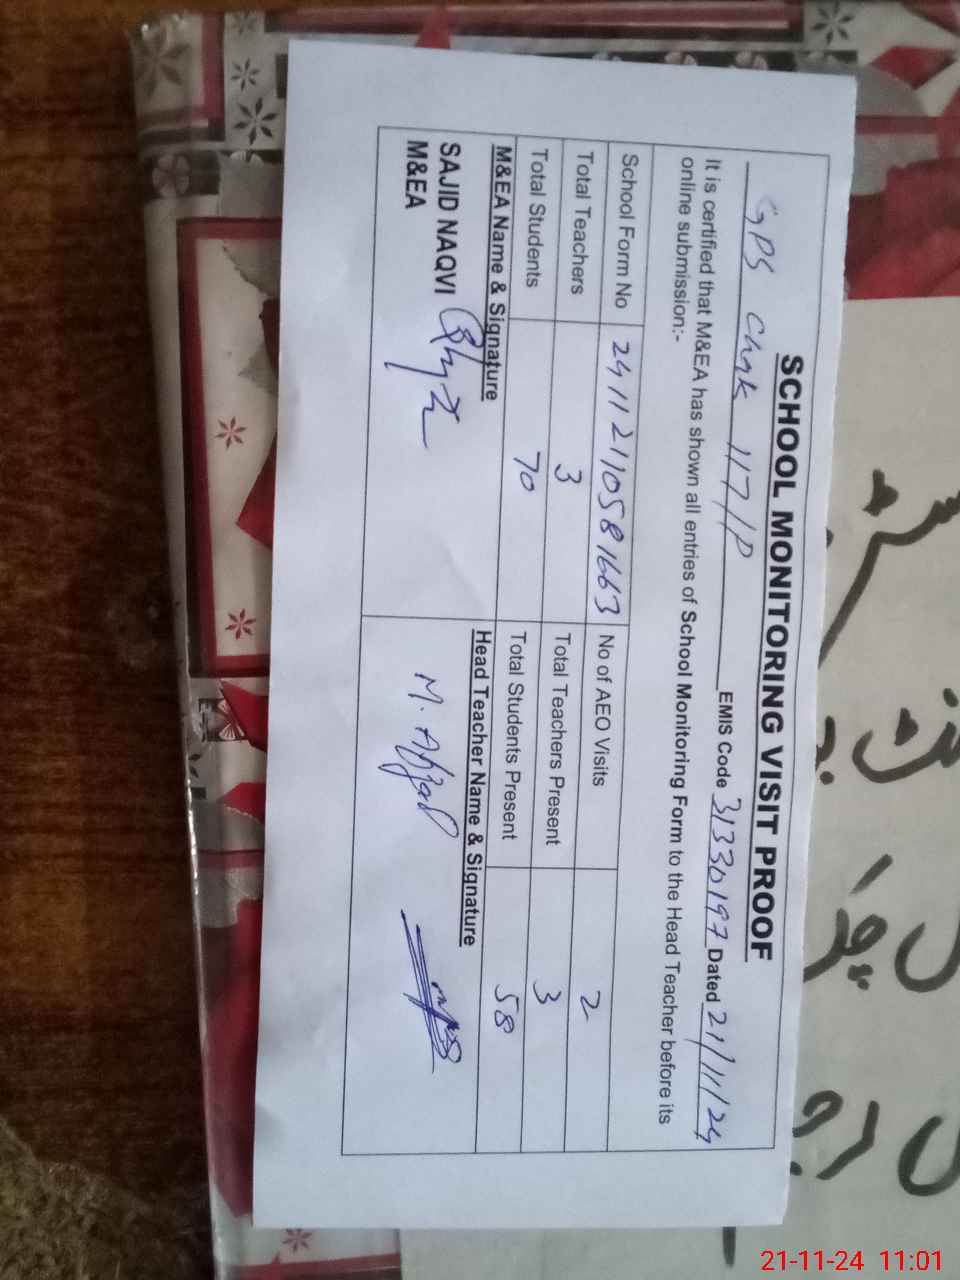 SCHOOL MONITORING VISIT PROOF
GPS Chak 117/P EMIS Code 31330197 Dated 21/11/24
It is certified that M&EA has shown all entries of School Monitoring Form to the Head Teacher before its
online submission:-
School Form No 241121105816663 No of AEO Visits 2
Total Teachers 3 Total Teachers Present 3
Total Students 70 Total Students Present 58
M&EA Name & Signature Head Teacher Name & Signature
SAJID NAQVI M. Afzal
M&EA
21-11-24 11:01